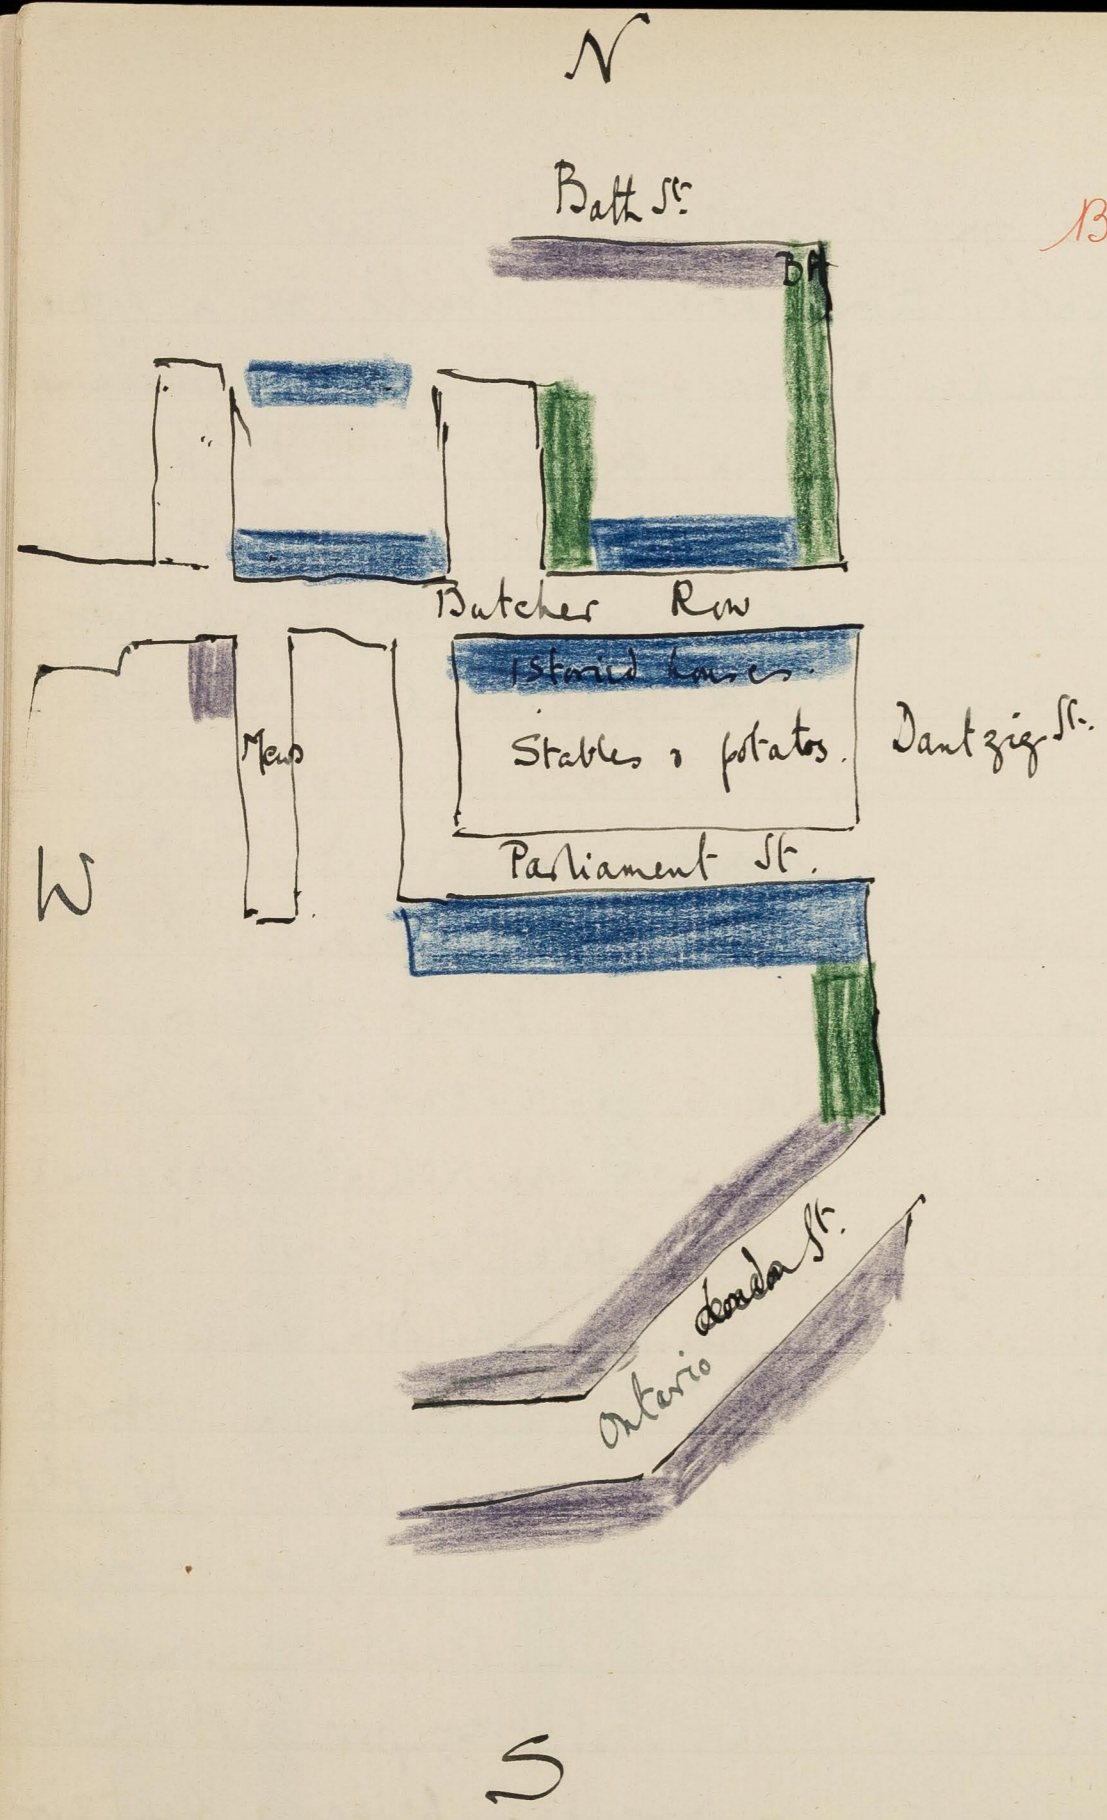 N
Bath St.
B
BH
Butcher Row
1 Storied houses.
Stables & potatos.
Dantzig St.
Mews
Parliament St.
W
London St.
Ontario
S